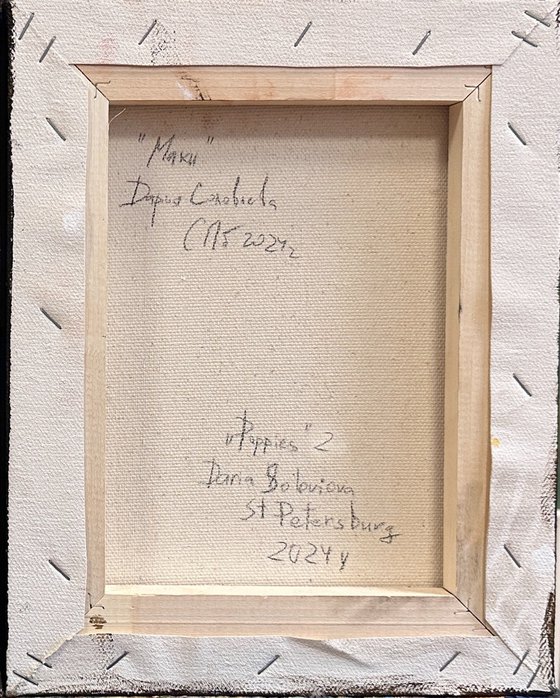 "Маки"
Дарья Соловьева
СПб 2024г
"Poppies" 2
Daria Soloviova
St Petersburg
2024 y